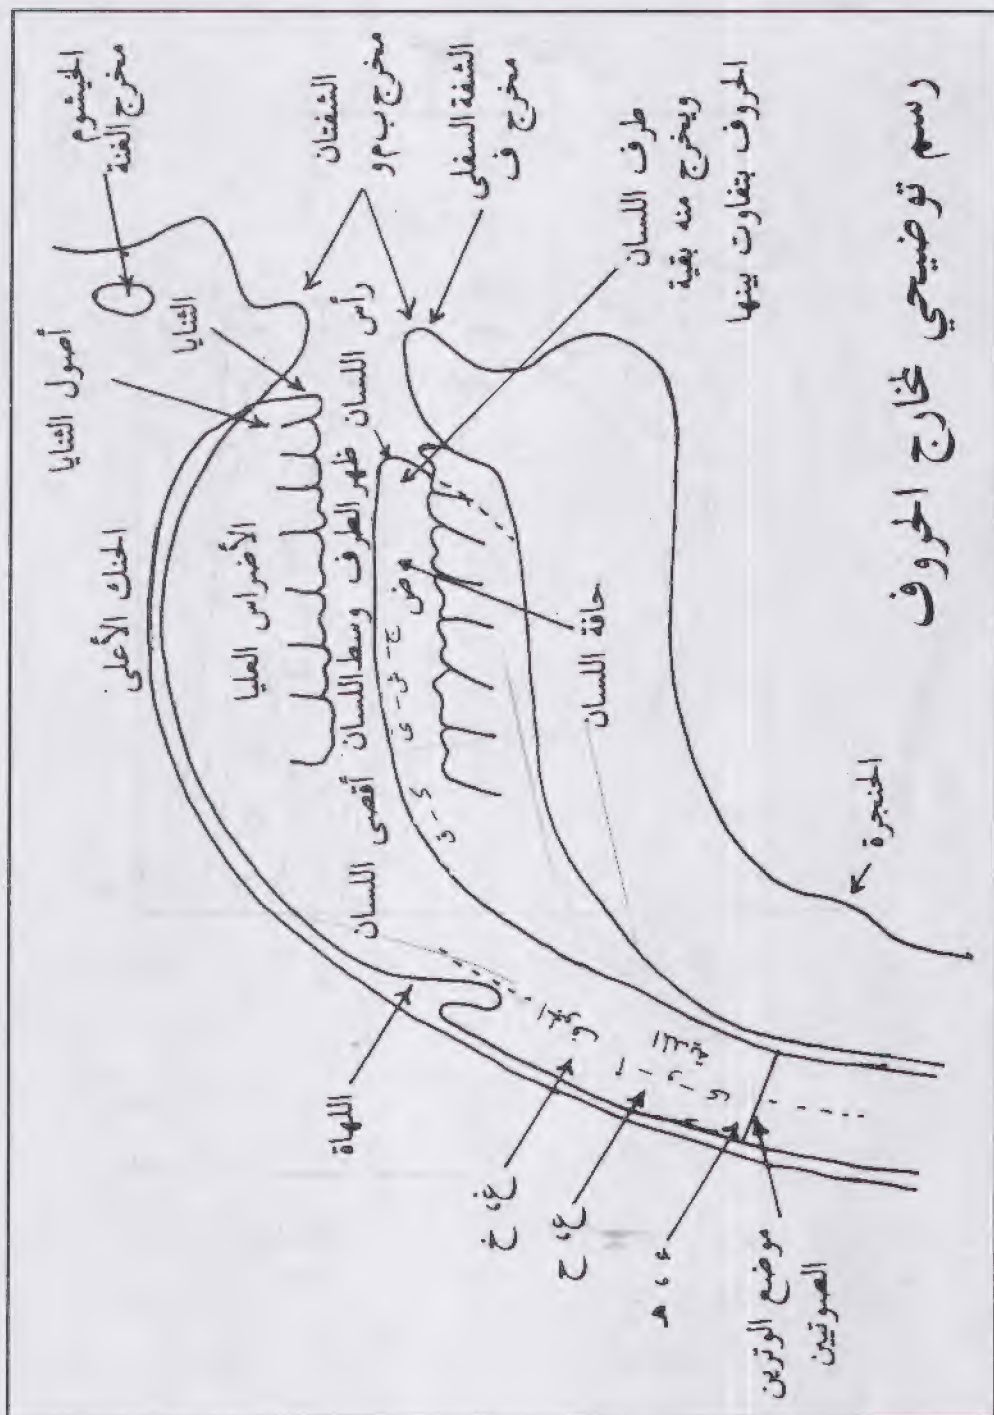 رسم توضيحي لمخارج الحروف
الخيشوم
مخرج الغنة
الشفتان
مخرج ب م و
الشفة السفلى
مخرج ف
طرف اللسان
ويخرج منه بقية
الحروف بتفاوت بينها
الثنايا
أصول الثنايا
رأس اللسان
ظهر الطرف
وسط اللسان
أقصى اللسان
الحنك الأعلى
الأضراس العليا
ض
ج - ش - ي
ك - ق
حافة اللسان
الحنجرة
اللهاة
غ، خ
ع، ح
ء، هـ
موضع الوترين
الصوتيين